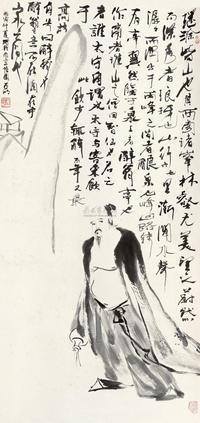 環滁皆山也其西南諸峰林壑尤美望之蔚然
而深秀者琅琊也山行六七里漸聞水聲
潺潺而瀉出於兩峰之間者釀泉也峰回路轉
有亭翼然臨於泉上者醉翁亭也
作亭者誰山之僧曰智仙也名之
者誰太守自謂也太守與客來飲
於此飲少輒醉而年又最
高故
自號曰醉翁也
醉翁之意不在酒在乎
山水之間也